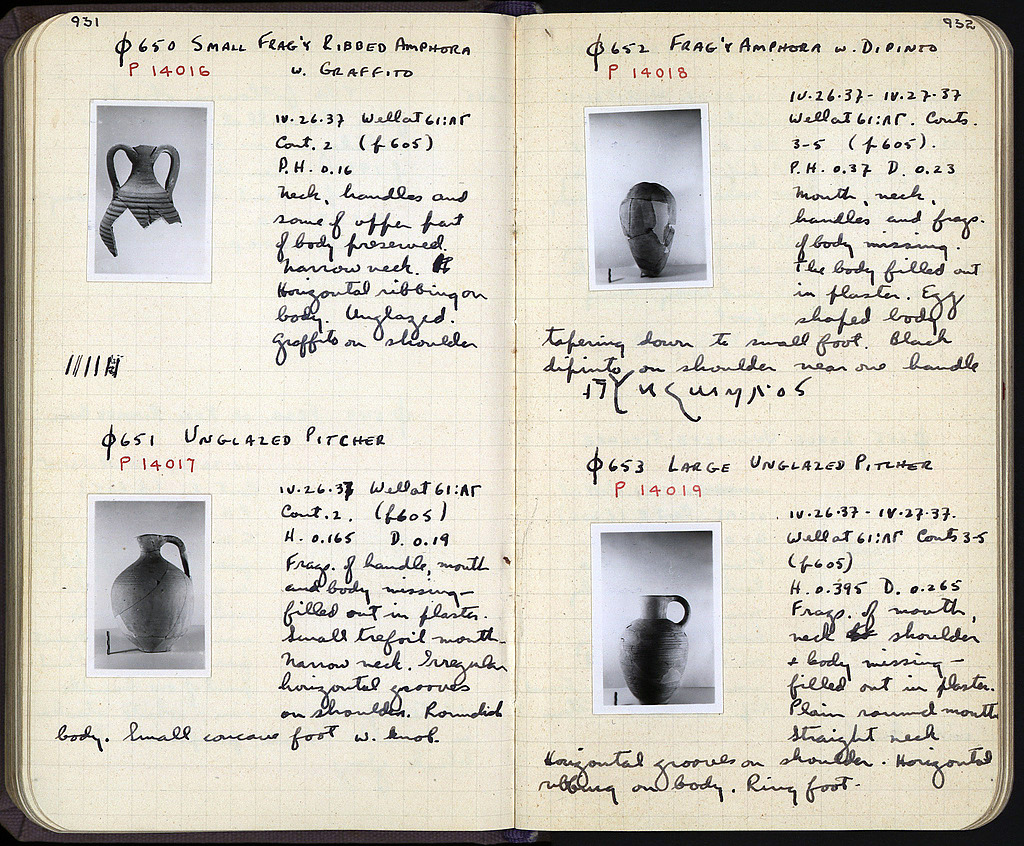 931
ϕ650 SMALL FRAG'Y RIBBED AMPHORA
P 14016 W. GRAFFITO
IV.26.37 Well at 61:ΛΓ
Cont. 2 (f 605)
P.H. 0.16
Neck, handles and
some of upper part
of body preserved.
Narrow neck.
Horizontal ribbing on
body. Unglazed.
Graffito on shoulder
ϕ651 UNGLAZED PITCHER
P 14017
IV.26.37 Well at 61:ΛΓ
Cont. 2. (f605)
H. 0.165 D. 0.19
Frags. of handle, mouth
and body missing –
filled out in plaster.
Small trefoil mouth.
Narrow neck. Irregular
horizontal grooves
on shoulder. Roundish
body. Small concave foot w. knob.
932
ϕ652 FRAG'Y AMPHORA W. DIPINTO
P 14018
IV.26.37 - IV.27.37
Well at 61:ΛΓ. Conts.
3-5 (f 605).
P.H. 0.37 D. 0.23
Mouth, neck,
handles and frags.
of body missing.
The body filled out
in plaster. Egg
shaped body
tapering down to small foot. Black
dipinto on shoulder near one handle
ϕ653 LARGE UNGLAZED PITCHER
P 14019
IV.26.37 - IV.27.37.
Well at 61:ΛΓ Conts 3-5
(f605)
H. 0.395 D. 0.265
Frags. of mouth,
neck shoulder
+ body missing –
filled out in plaster.
Plain round mouth
Straight neck
Horizontal grooves on shoulder. Horizontal
ribbing on body. Ring foot.